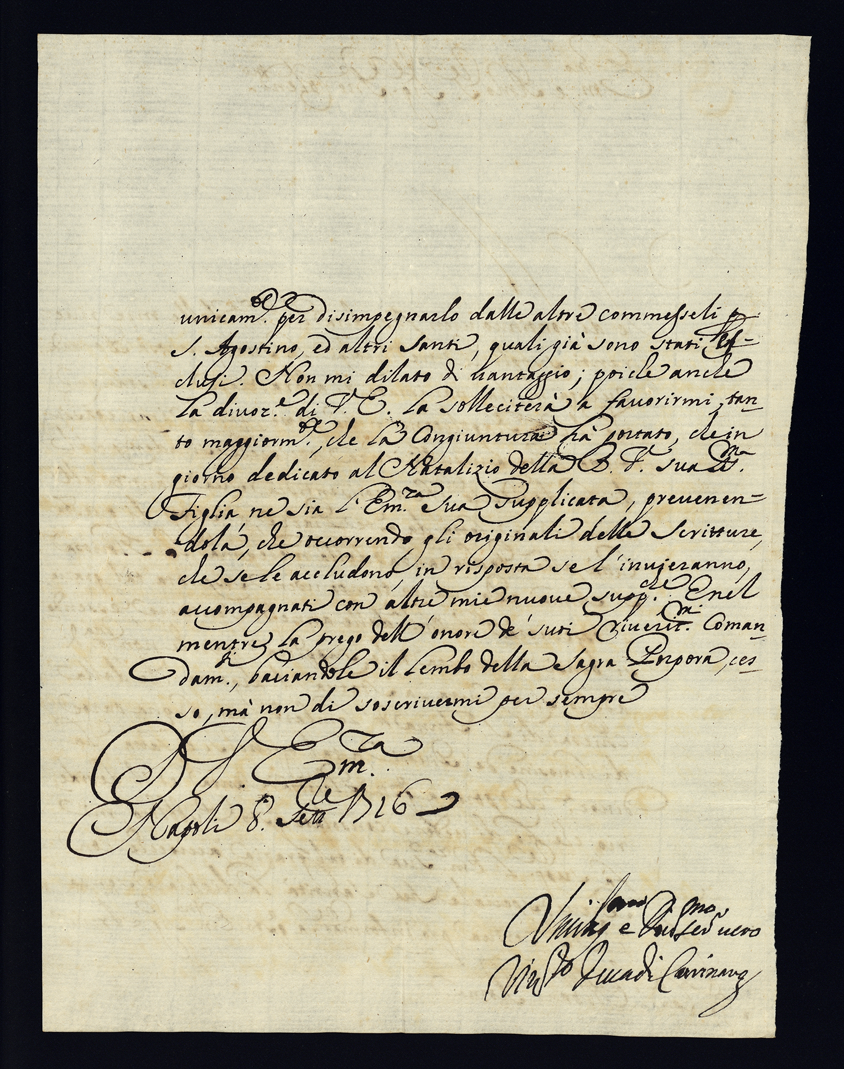 unicam.te per disimpegnarlo dalle altre commesseli p
S. Agostino, ed altri santi, quali già sono stati es-
clusi. Non mi dilato di vantaggio; poiche anche
la divoz.e di V. E. la solleciterà a favorirmi, tan-
to maggiorm.te, che la Congiuntura hà portato, che in
giorno dedicato al Natalizio della B. V. sua
figlia ne sia l'Em.za Sua Supplicata, prevenen-
dola, che occorrendo gli originali delle scritture,
che se le accludono, in risposta se l'invieranno,
accompagnati con altre mie nuove supp.che E nel
mentre la prego dell'onore de' suoi riverit.mi Coman-
dam.ti, baciandole il lembo della Sagra Porpora, ces-
so, mà non di soscrivermi per sempre
D. V. Em.za
Napoli 8. 1716
e ser vero
Duca di